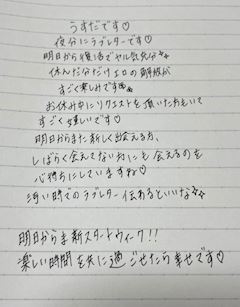 うすだです♡
夜分にラブレターです♡
明日から復活でヤル気充分
休んだ分だけエロの解放が
すごく楽しみです
お休み中にリクエストを頂いたおもいて
すごく嬉しいです♡
明日からまた新しく出会える方、
しばらく会えてない方にも会えるのを
心待ちにしていますね♡
遅い時でのラブレター伝わるといいな
明日からま新スタートウィーク!!
楽しい時間を共に過ごせたら幸せです♡